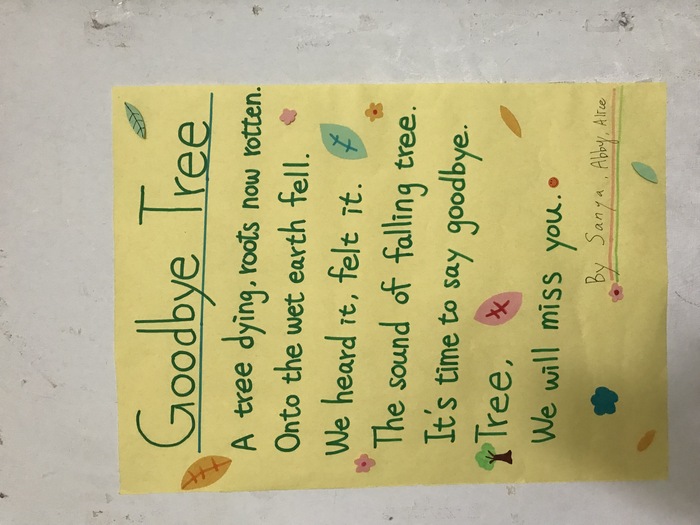 Goodbye Tree
A tree dying, roots now rotten.
Onto the wet earth fell.
We heard it, felt it.
The sound of falling tree.
It's time to say goodbye.
Tree,
We will miss you.
By Sanya, Abby, Alice